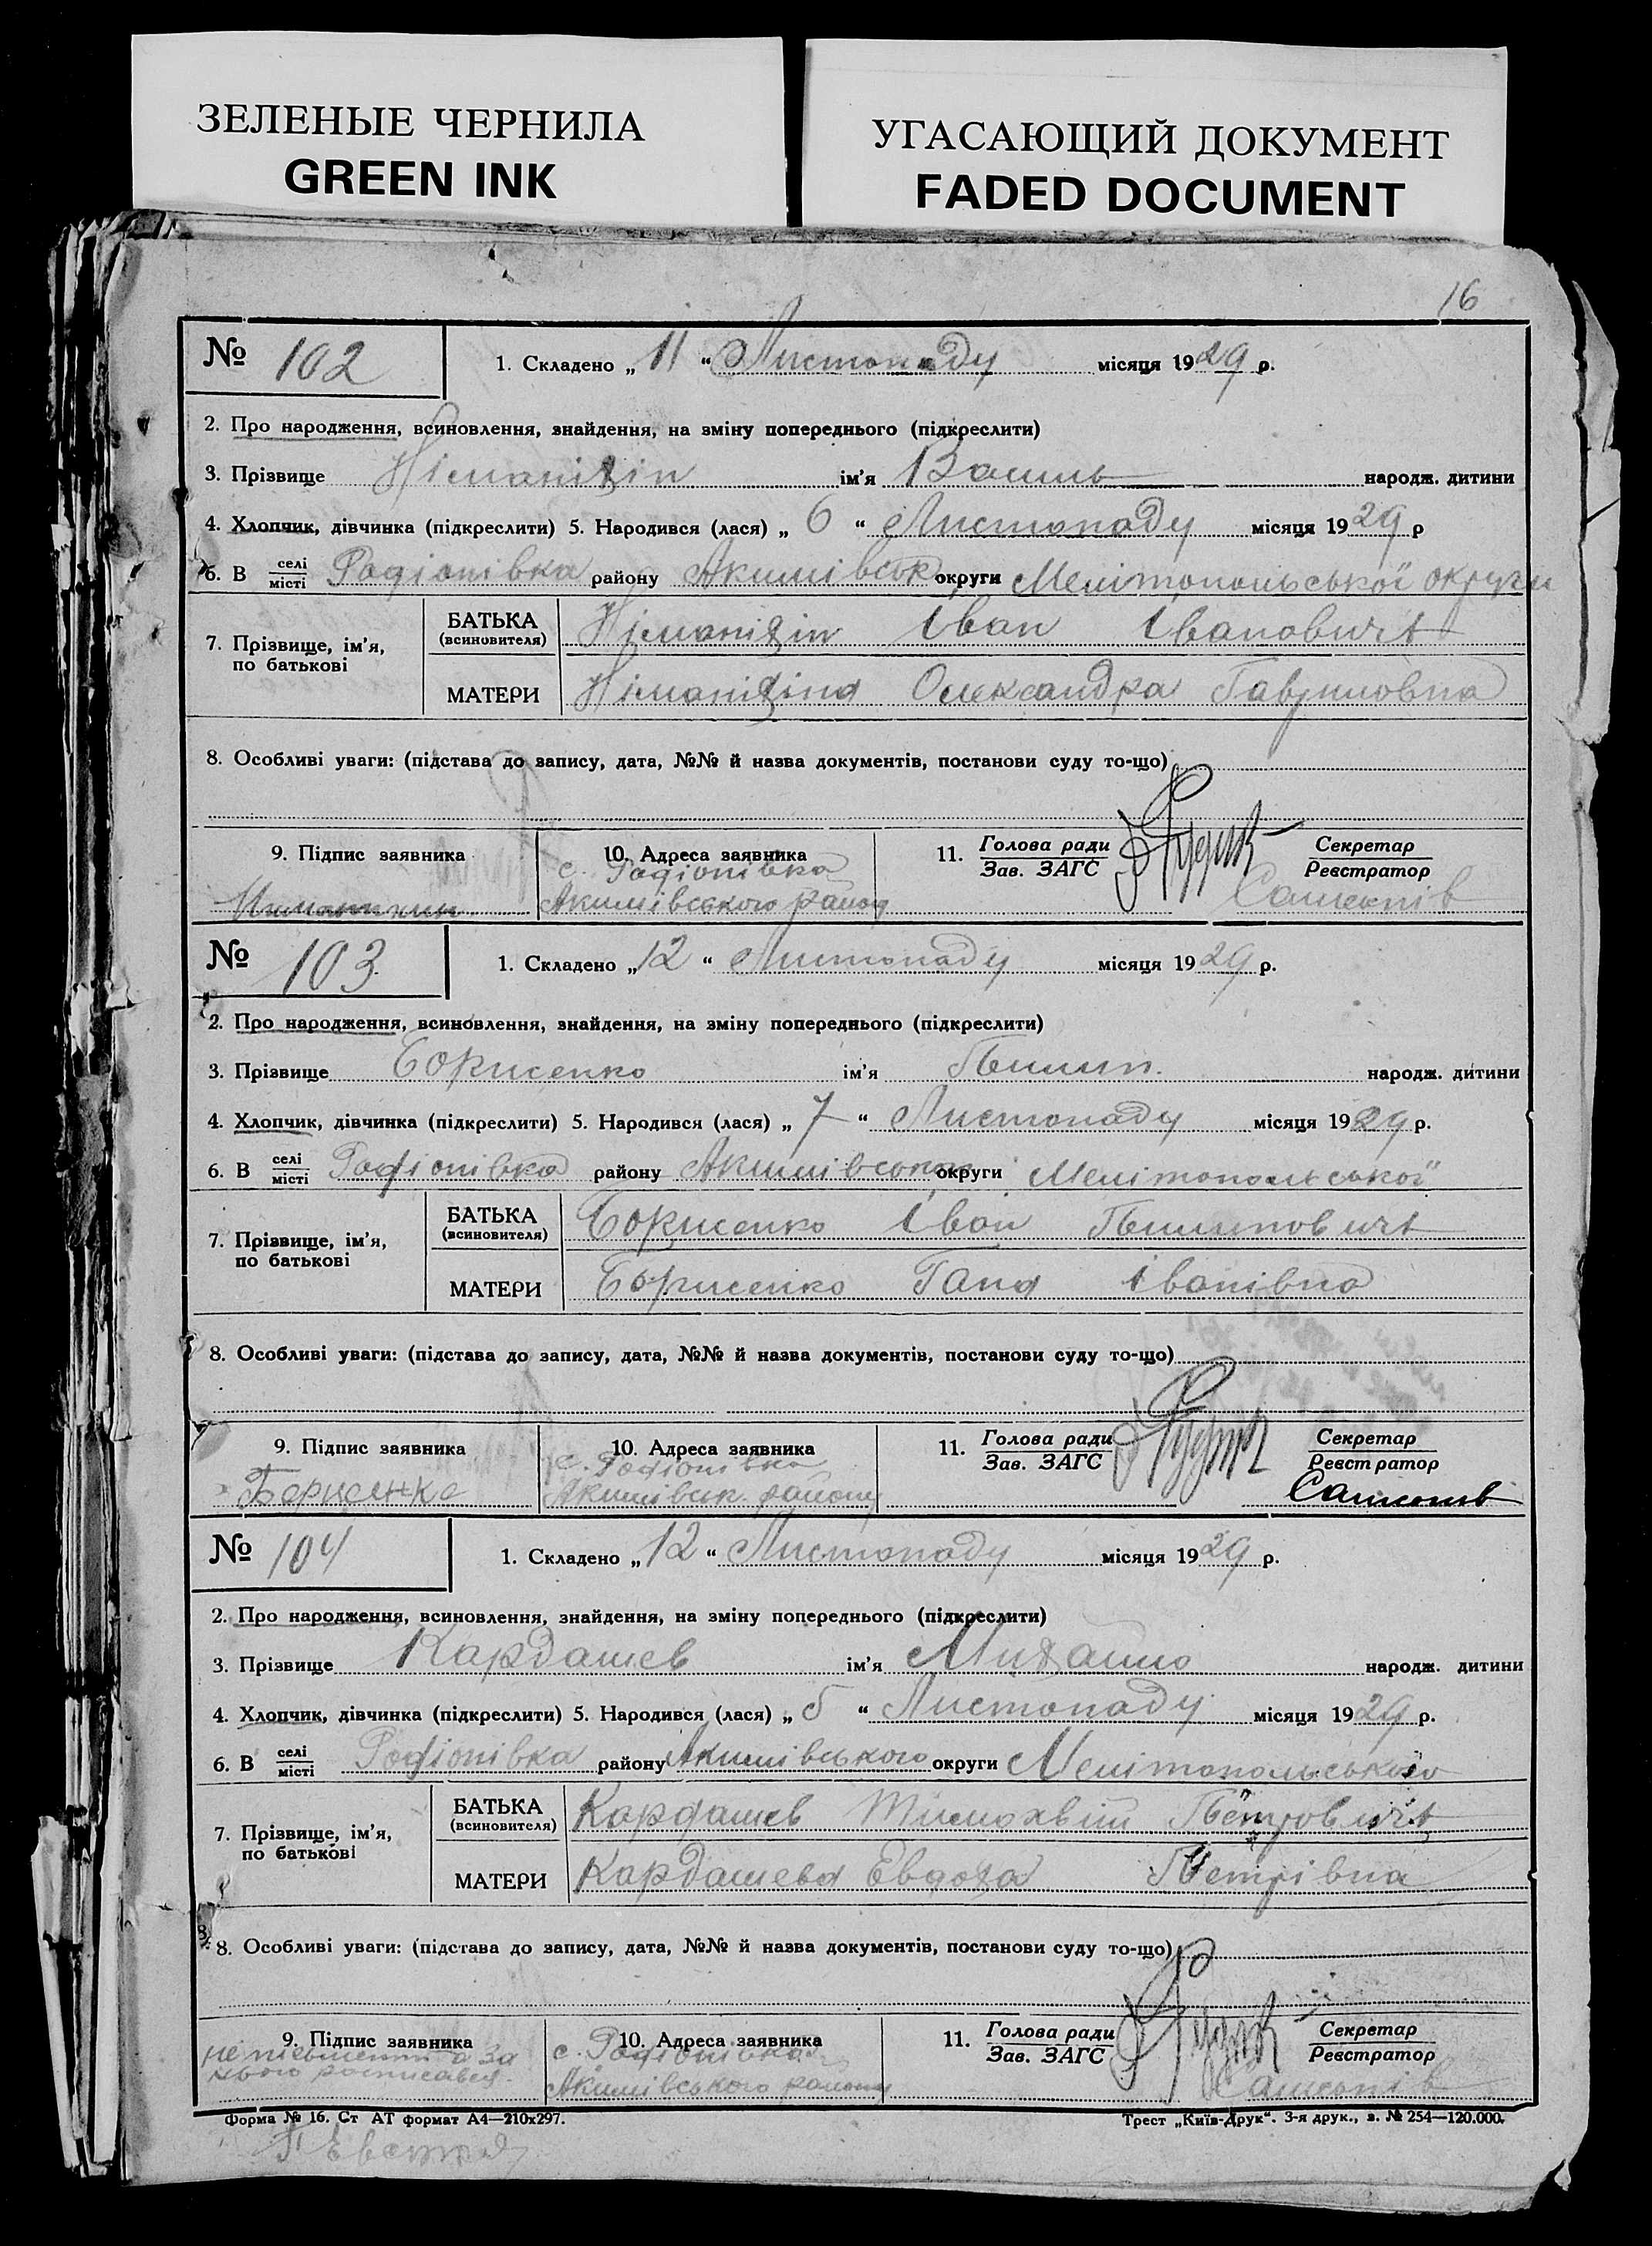 ЗЕЛЕНЫЕ ЧЕРНИЛА
GREEN INK
УГАСАЮЩИЙ ДОКУМЕНТ
FADED DOCUMENT
16
№ 102 1. Складено „ 11 “ Листопаду місяця 1929 р.
2. Про народження, всиновлення, знайдення, на зміну попереднього (підкреслити)
3. Прізвище ім'я Василь народж. дитини
4. Хлопчик, дівчинка (підкреслити) 5. Народився (лася) „ 6 “ Листопаду місяця 1929 р
6. В селі місті Радіонівка району Акимівськ округи Мелітопольської округи
7. Прізвище, ім'я, по батькові
БАТЬКА (всиновителя) Іван Іванович
МАТЕРИ Олександра Гавриловна
8. Особливі уваги: (підстава до запису, дата, №№ й назва документів, постанови суду то-що)
9. Підпис заявника 10. Адреса заявника 11. Голова ради Зав. ЗАГС Секретар Реєстратор
с. Радіонівка
Акимівського району
№ 103 1. Складено „ 12 “ Листопаду місяця 1929 р.
2. Про народження, всиновлення, знайдення, на зміну попереднього (підкреслити)
3. Прізвище Борисенко ім'я Пилип. народж. дитини
4. Хлопчик, дівчинка (підкреслити) 5. Народився (лася) „ 7 “ Листопаду місяця 1929 р.
6. В селі місті Радіонівка району Акимівського округи Мелітопольської
7. Прізвище, ім'я, по батькові
БАТЬКА (всиновителя) Борисенко Іван Пилипович
МАТЕРИ Борисенко Гана Іванівна
8. Особливі уваги: (підстава до запису, дата, №№ й назва документів, постанови суду то-що)
9. Підпис заявника 10. Адреса заявника 11. Голова ради Зав. ЗАГС Секретар Реєстратор
с. Радіонівка
Борисенко Акимівськ. району
№ 104 1. Складено „ 12 “ Листопаду місяця 1929 р.
2. Про народження, всиновлення, знайдення, на зміну попереднього (підкреслити)
3. Прізвище Кардашев ім'я Михайло народж. дитини
4. Хлопчик, дівчинка (підкреслити) 5. Народився (лася) „ 5 “ Листопаду місяця 1929 р.
6. В селі місті Радіонівка району Акимівського округи Мелітопольського
7. Прізвище, ім'я, по батькові
БАТЬКА (всиновителя) Кардашев Тимохвій Петрович
МАТЕРИ Кардашева Евдоха Петрівна
8. Особливі уваги: (підстава до запису, дата, №№ й назва документів, постанови суду то-що)
9. Підпис заявника 10. Адреса заявника 11. Голова ради Зав. ЗАГС Секретар Реєстратор
с. Радіонівка
Акимівського району
Форма № 16. Ст АТ формат А4—210х297. Трест „Київ-Друк“. 3-я друк., з. № 254—120.000.